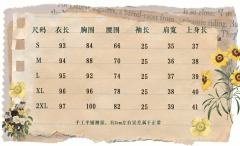 尺码 衣长 胸围 腰围 袖长 肩宽 上身长
S 93 84 66 25 35 37
M 94 88 70 25 36 38
L 95 92 74 25 37 39
XL 96 96 78 25 38 40
2XL 97 100 82 25 39 41
手工平铺测量，有3cm左右误差属于正常